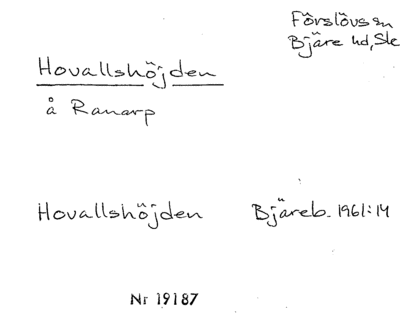 Förslövs sn
Bjäre hd, Sk
Hovallshöjden
å Ranarp
Hovallshöjden Bjäreb. 1961:14
Nr 19187